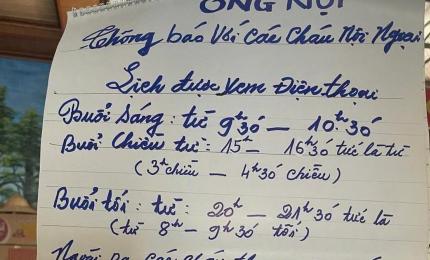 ÔNG NỘI
Thông báo Với các cháu Nội Ngoại
Lịch được xem Điện thoại
Buổi sáng: từ 9ʰ30 — 10ʰ30
Buổi Chiều từ: 15ʰ — 16ʰ30 tức là từ
(3ʰ chiều — 4ʰ30 chiều)
Buổi tối: từ: 20ʰ — 21ʰ30 tức là
(từ 8ʰ — 9ʰ30 tối)
Ngoài ra các cháu